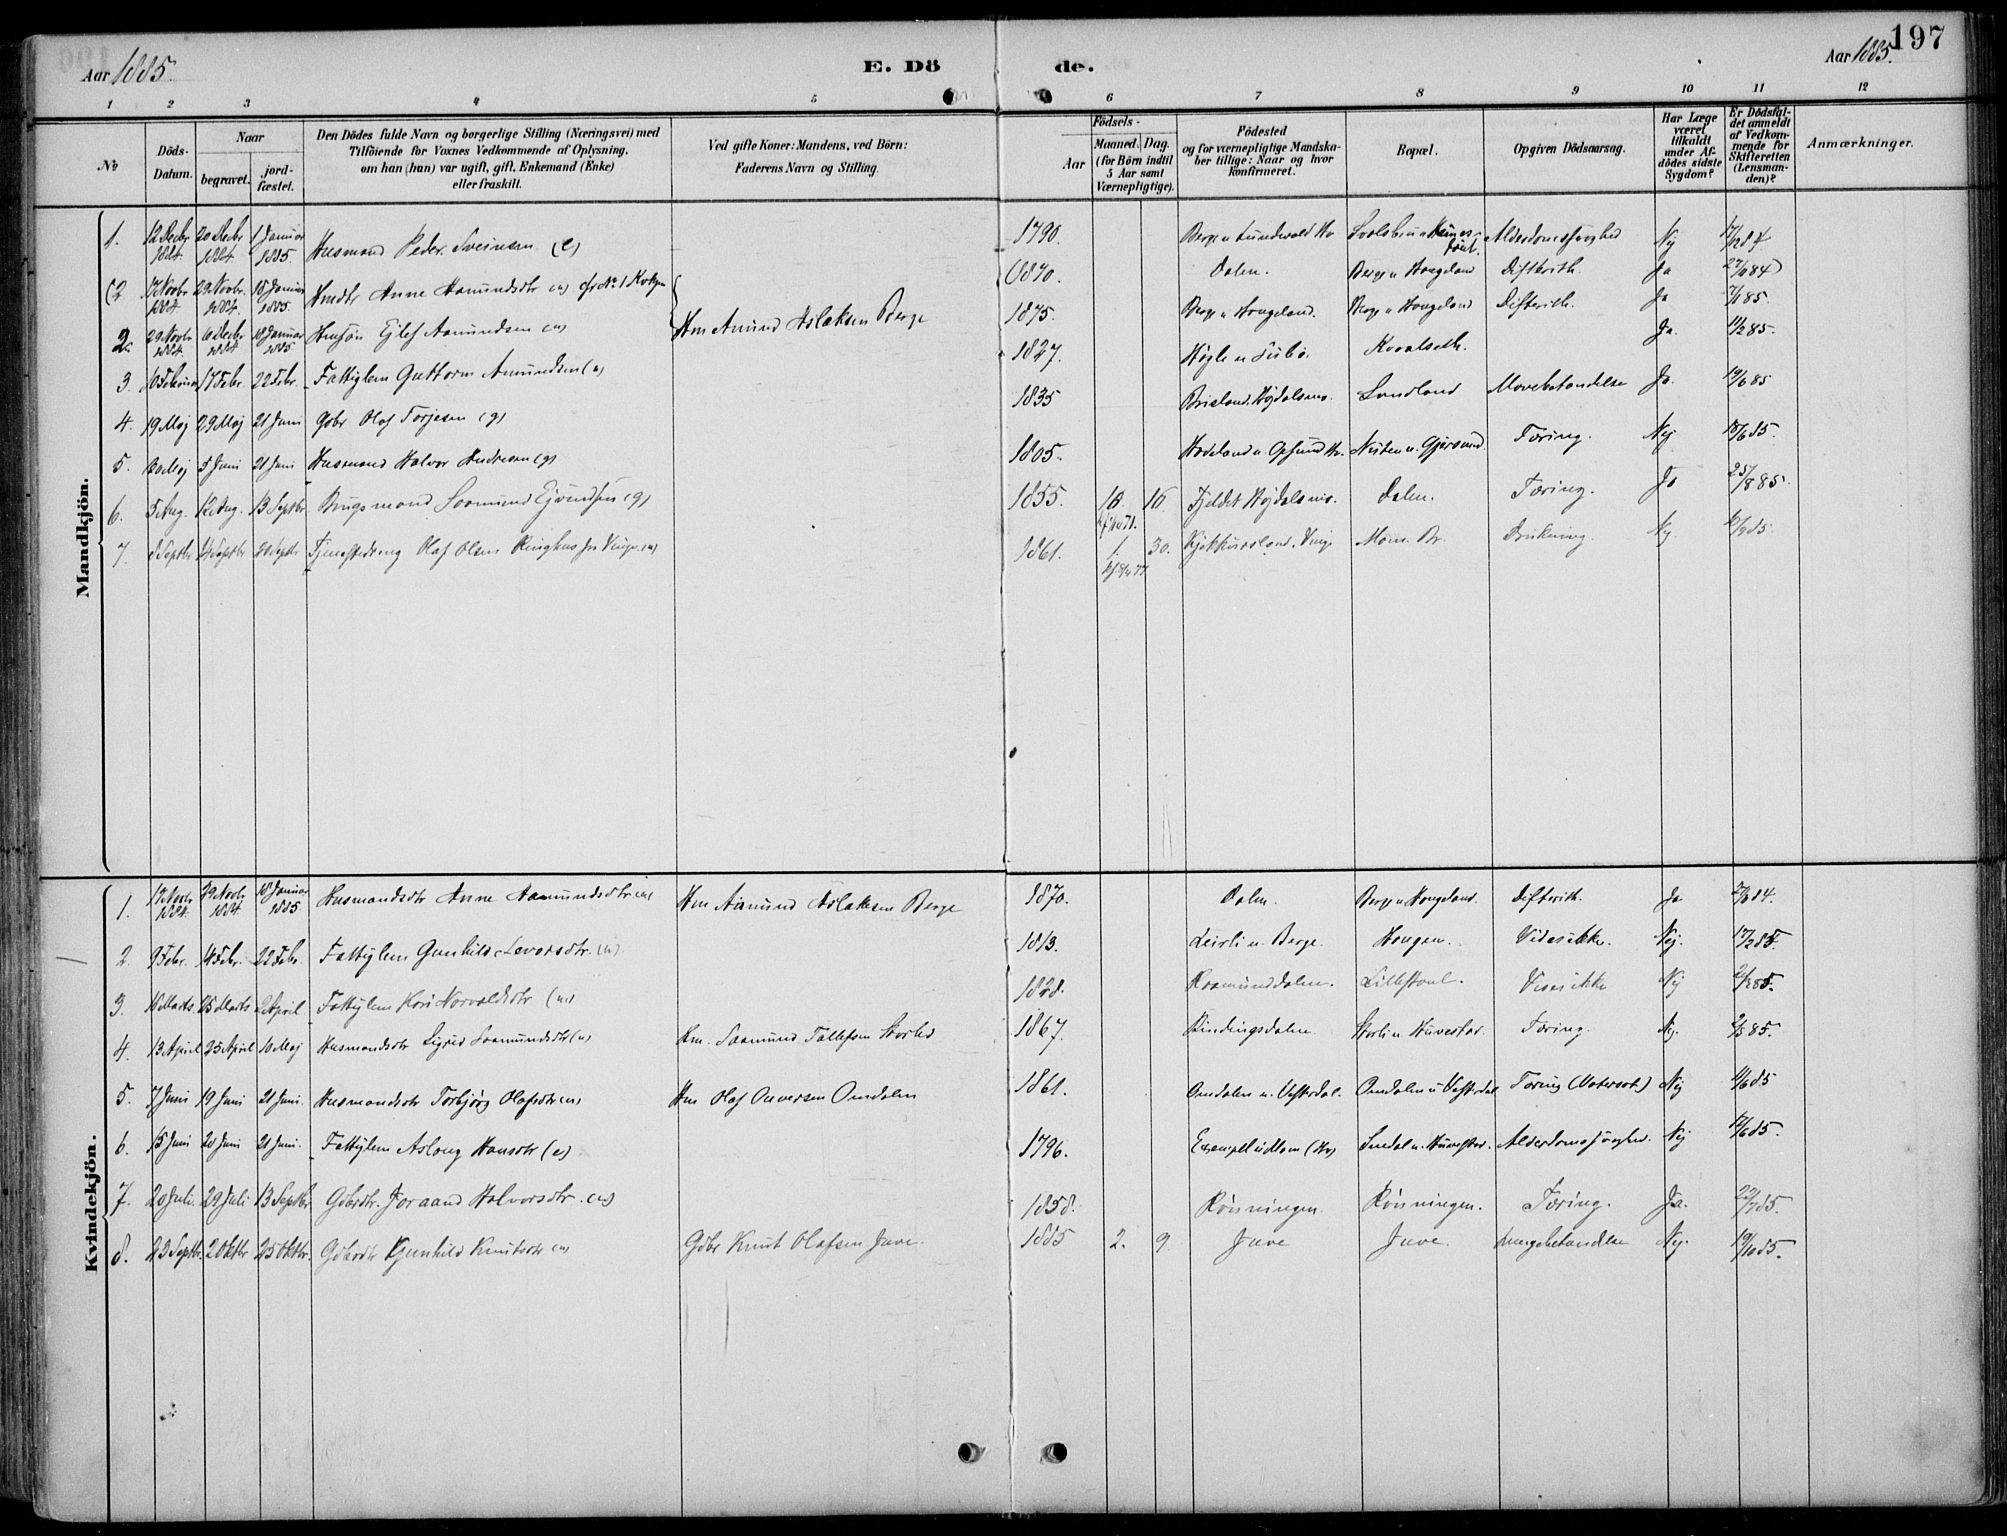 197
Aar 1885.
E. Dö de.
Aar 1885.
1 2 3 4 5 6 7 8 9 10 11 12
№
Döds-Datum.
Naar
begravet.
jord-fæstet.
Den Dödes fulde Navn og borgerlige Stilling (Næringsvei) med
Tilföiende for Voxnes Vedkommende af Oplysning,
om han (hun) var ugift, gift, Enkemand (Enke)
eller fraskilt.
Ved gifte Koner: Mandens, ved Börn:
Faderens Navn og Stilling.
Födsels-
Aar
Maaned. Dag.
(for Börn indtil
5 Aar samt
Værnepligtige).
Födested
og for værnepligtige Mandska-
ber tillige: Naar og hvor
konfirmeret.
Bopæl.
Opgiven Dödsaarsag.
Har Læge
været
tilkaldt
under Af-
dödes sidste
Sygdom?
Er Dödsfal-
det anmeldt
af Vedkom-
mende for
Skifteretten
(Lensman-
den)?
Anmærkninger.
Mandkjön.
1. 12 Decbr 1884. 20 Decbr 1884. 1 Januar 1885. Husmand Peder Sveinsen (e) 1790. Alderdomssvaghed Nej 17/12 84
(2 17 Novbr 1884. 29 Novbr. 1884. 18 Januar 1885. Hmdtr Anne Aamundsdtr (u) cfr No 1 Kvkjøn (1870. Dalen. Berge u Haugeland Difterith. Ja 27/11 84)
2. 29 Novbr 1884. 6 Decbr 1884. 18 Januar 1885 Hmsøn Ejlef Aamundsen (u) Hm Amund Aslaksen Berge 1875. Berge u Haugeland. Berge u Haugeland Difterith. Ja 7/1 85.
3. 10 Februar 17 Febr. 22 Febr. Fattiglem Guttorm Amundsen (u) 1827. Kvaalseth. Ja. 11/2 85.
4. 19 Maj 29 Maj 21 Juni Gbr Olaf Torjesen (g) 1835 Brieland. Højdalsmo. Landland Mavebetændelse Ja. 19/6 85
5. Maj 5 Juni 21 Juni Husmand Halvor Andresen (g) 1805. Tæring. Nej 18/6 85.
6. 5 Aug. 12 Aug. 13 Septbr Brugsmand Saamund Ejvindsen (g) 1855 10. 16. Fjeldet Højdalsmo. Dalen. Tæring. Ja 25/8 85.
7. 8 Septbr 14 Septbr 20 Septbr Tjenestedreng Olaf Olsen fra Vinje (u) 1861. 1. 30. Vinje Drukning. Nej
Kvindekjön.
1. 17 Novbr 1884. 29 Novbr 1884. 18 Januar 1885. Husmandsdtr Anne Aamundsdtr (u) Hm Aamund Aslaksen Berge 1870. Dalen. Berge u Haugeland. Difterith. Ja 27/11 84.
2. 9 Febr. 14 Febr. 22 Febr. Fattiglem Gunhild Levorsdtr. (u) 1813. Leirli u. Berge. Haugen. Vides ikke. Nej. 17/2 85.
3. 16 Marts. 25 Marts 2 April Fattiglem Kari Norvaldsdtr (u) 1828. Raamunddalen. Lillestaul. Vides ikke Nej 2/3 85.
4. 13 April 25 April 10 Maj Husmandsdtr Sigrid Saamundsdtr (u) Hm. Saamund Tallefsen Storlid 1867. Bindingsdalen. Storli u. Huvestad. Tæring. Nej. 2/5 85.
5. 7 Juni 19 Juni 21 Juni. Husmandsdtr Torbjørg Olafsdtr (u) Hm Olaf Auversen Omdalen 1861. Omdalen u. Vesterdal. Omdalen u Vesterdal Tæring (Vatersot.) Nej 11/6 85
6. 15 Juni 20 Juni 21 Juni. Fattiglem Aslaug Hansdtr (e) 1796. Smedal u. Huvestad. Alderdomssvaghed. Nej 17/6 85.
7. 20 Juli. 29 Juli 13 Septbr Gbrdtr. Joraand Halvorsdtr. (u) 1858. Rønningen. Rønningen. Tæring. Ja. 22/7 85.
8. 23 Septbr. 2 Oktbr 25 Oktbr. Gbrdtr Gunhild Knutsdtr (u) Gbr Knut Olafsen Juve 1885 2. 9 Juve Juve. Lungebetændelse Nej. 19/10 85.